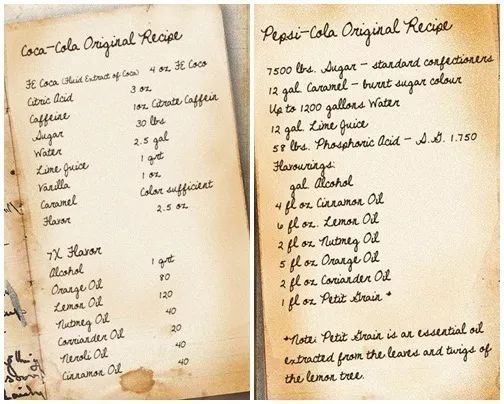 Coca-Cola Original Recipe
FE Coca (Fluid Extract of Coca) 4 oz FE Coco
Citric Acid 3 oz
Caffeine 1oz Citrate Caffein
Sugar 30 lbs
Water 2.5 gal
Lime Juice 1 qrt
Vanilla 1 oz
Caramel Color sufficient
Flavor 2.5 oz
7X Flavor
Alcohol 1 qrt
Orange Oil 80
Lemon Oil 120
Nutmeg Oil 40
Corriander Oil 20
Neroli Oil 40
Cinnamon Oil 40
Pepsi-Cola Original Recipe
7500 lbs. Sugar - standard confectioners
12 gal. Caramel - burnt sugar colour
Up to 1200 gallons Water
12 gal. Lime Juice
58 lbs. Phosphoric Acid - S.G. 1.750
Flavourings:
gal. Alcohol
4 fl oz. Cinnamon Oil
6 fl oz. Lemon Oil
2 fl oz Nutmeg Oil
5 fl oz Orange Oil
2 fl oz Coriander Oil
1 fl oz Petit Grain *
*Note: Petit Grain is an essential oil
extracted from the leaves and twigs of
the lemon tree.